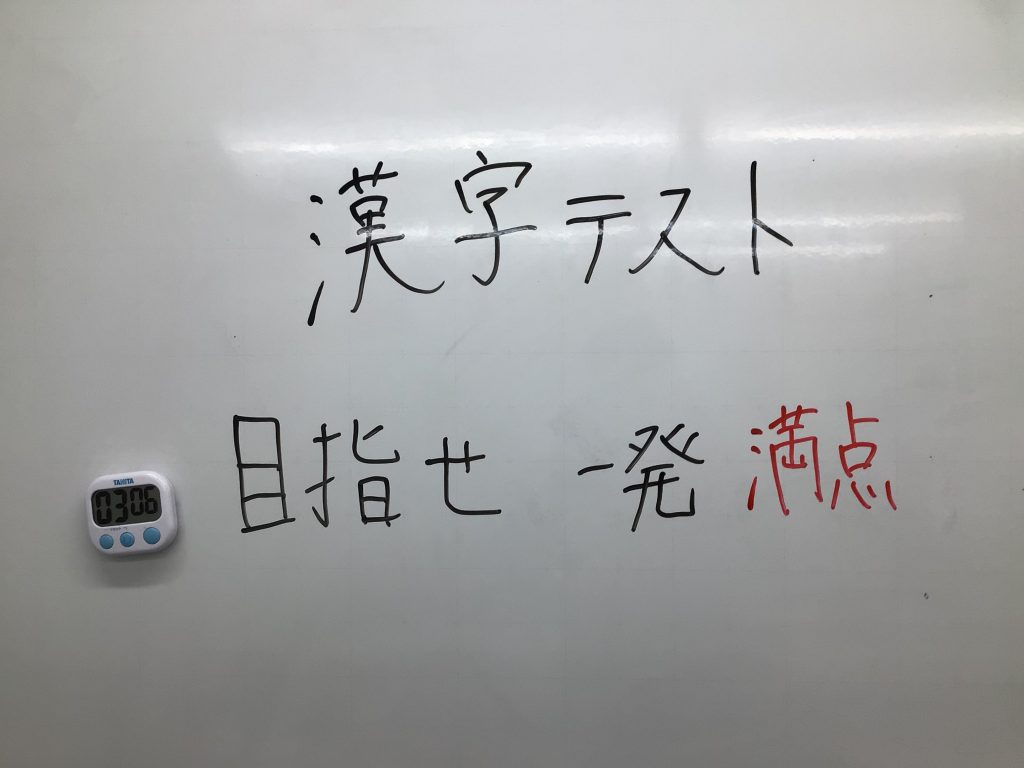 漢字テスト
目指せ 一発 満点
TANITA
03 06